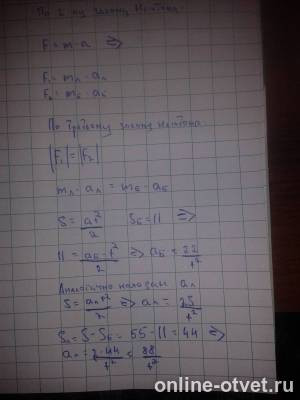 По 2-му закону Ньютона:
F = m·a ⇒
F₁ = mл · aл
F₂ = mб · aб
По третьему закону Ньютона
|F₁| = |F₂|
mл · aл = mб · aб
S = at²/2 Sб = 11 ⇒
11 = aб · t²/2 ⇒ aб = 22/t²
Аналогично находим aл
S = aлt²/2 ⇒ aл = 2S/t²
Sл = S - Sб = 55 - 11 = 44 ⇒
aл = 2·44/t² = 88/t²
online-otvet.ru